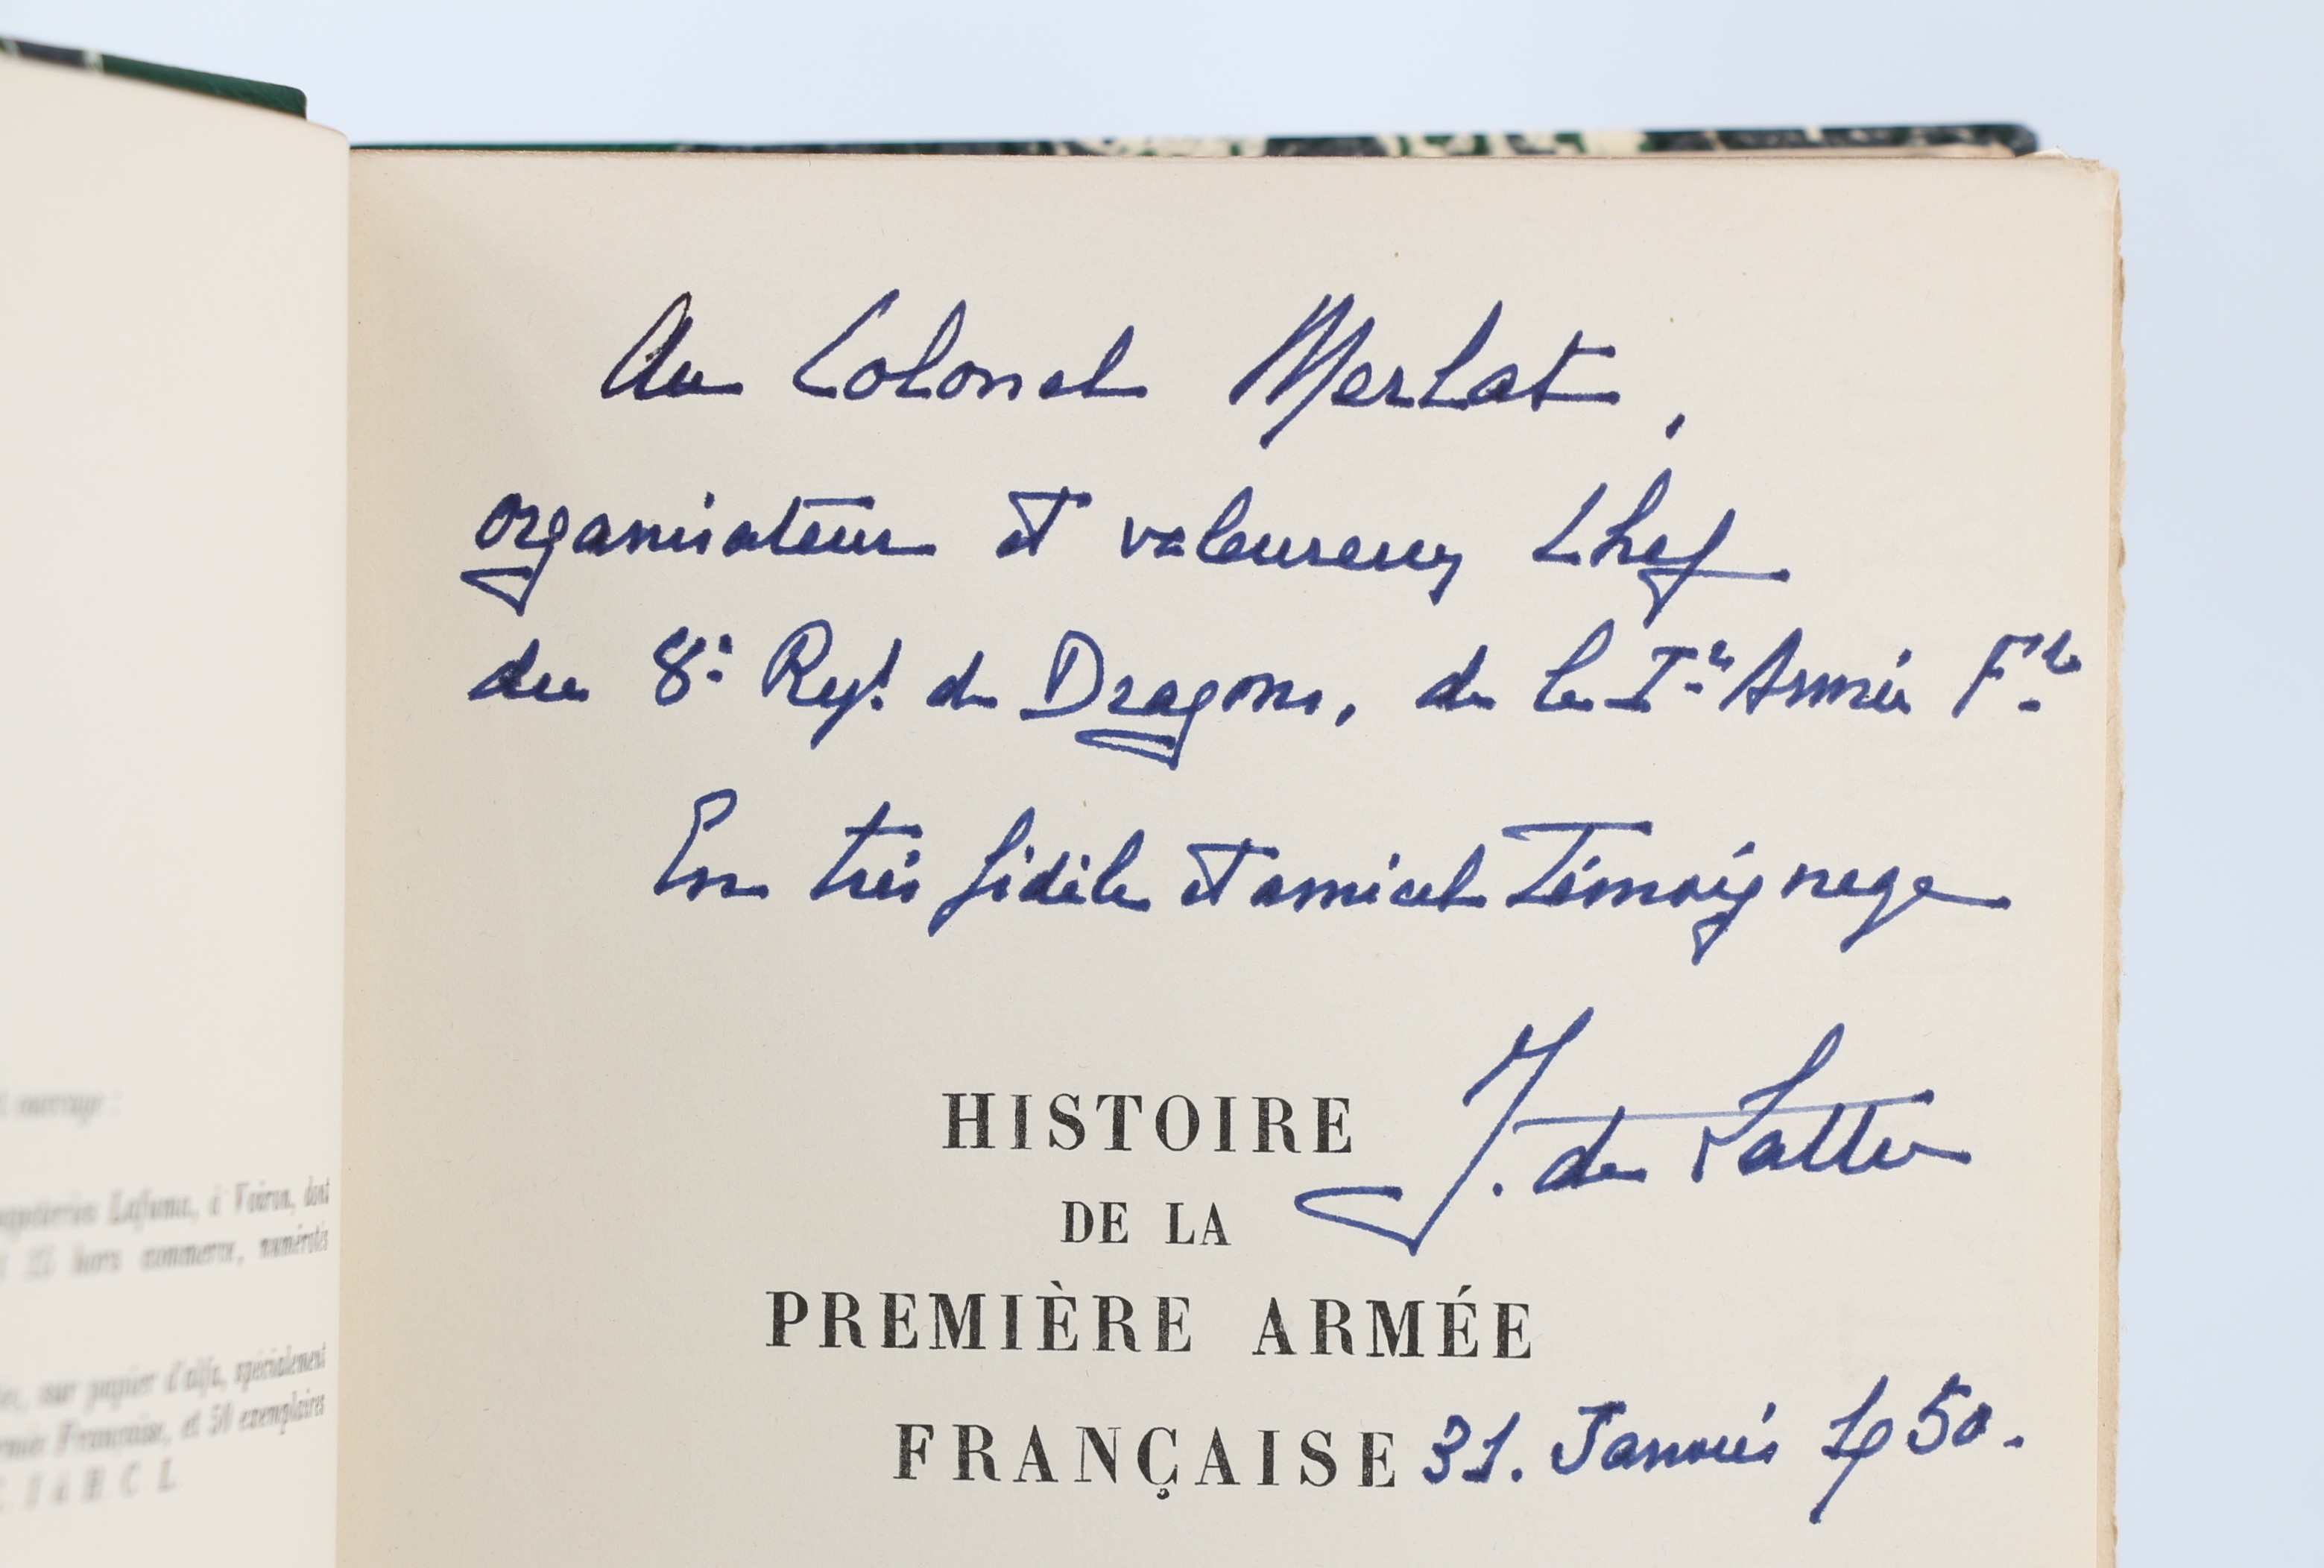 Au Colonel Merlat,
organisateur et valeureux Chef
du 8e Regt de Dragons, de la Ière Armée Fse
En très fidèle et amical témoignage
J. de Lattre
HISTOIRE
DE LA
PREMIÈRE ARMÉE
FRANÇAISE
31. Janvier 1950.
ouvrage :
Lafuma, à Voiron, dont
III hors commerce, numérotés
sur papier d'alfa, spécialement
Française, et 50 exemplaires
I à H. C L